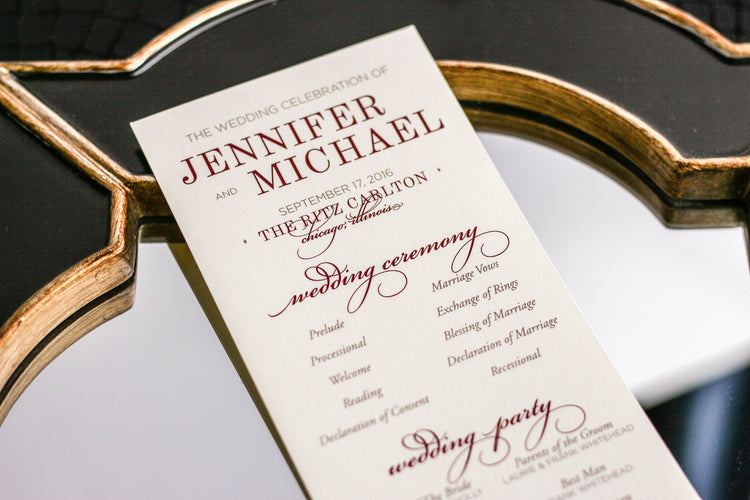 THE WEDDING CELEBRATION OF
JENNIFER
AND MICHAEL
SEPTEMBER 17, 2016
THE RITZ CARLTON
chicago, illinois
wedding ceremony
Prelude
Processional
Welcome
Reading
Declaration of Consent
Marriage Vows
Exchange of Rings
Blessing of Marriage
Declaration of Marriage
Recessional
wedding party
The Bride
Parents of the Groom
LAURIE & FRANK WHITEHEAD
Best Man
WHITEHEAD